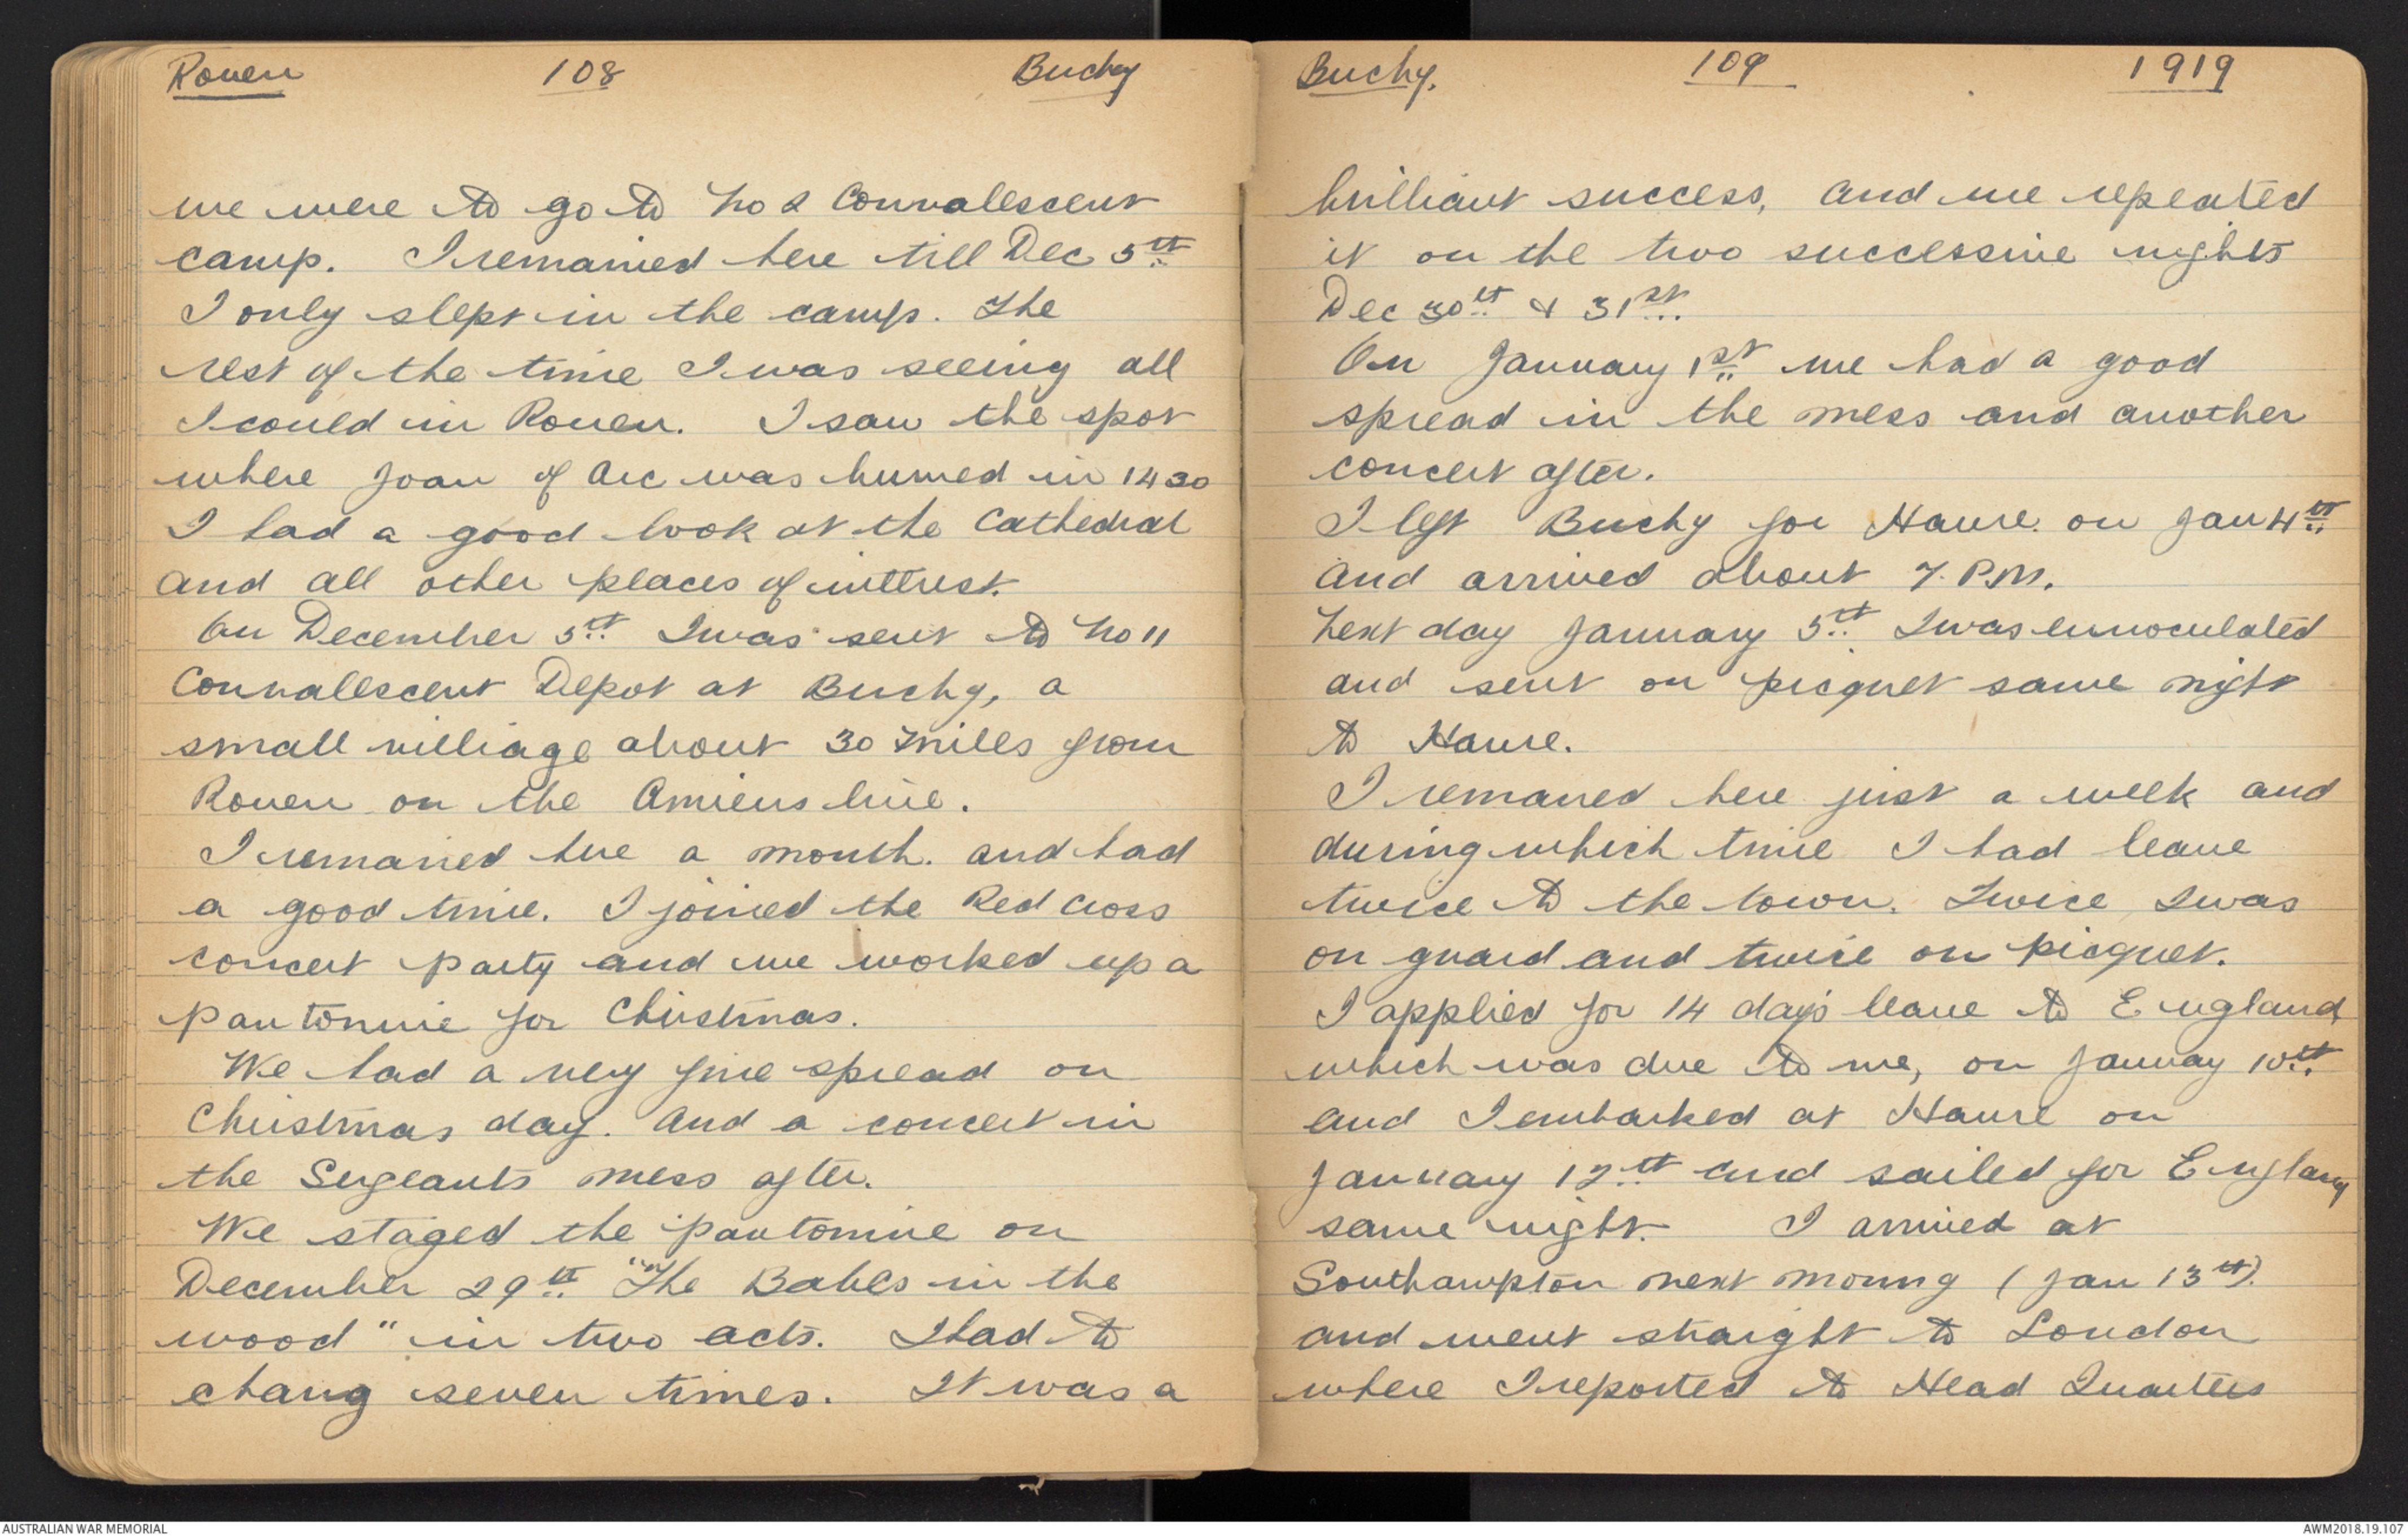 Rouen 108 Buchy
we were to go to No 2 Convalescent
camp. I remained here till Dec 5th
I only slept in the camp. The
rest of the time I was seeing all
I could in Rouen. I saw the spot
where Joan of Arc was burned in 1430
I had a good look at the Cathedral
and all other places of inttrest.
On December 5th I was sent to No 11
Convalescent Depot at Buchy, a
small villiage about 30 miles from
Rouen on the Amiens line.
I remained here a month. and had
a good time. I joined the Red Cross
concert party and we worked up a
pantomine for Christmas.
We had a very fine spread on
Christmas day. And a concert in
the Sergeants mess after.
We staged the pantomine on
December 29th "The Babes in the
wood" in two acts. I had to
chang seven times. It was a
Buchy. 109 1919
brilliant success, and we repeated
it on the two successive nights
Dec 30th & 31st.
On January 1st we had a good
spread in the mess and another
concert after.
I left Buchy for Havre on Jan 4th
and arrived about 7. P.M.
Next day January 5th I was ennoculated
and sent on picquet same night
to Havre.
I remaned here just a week and
during which time I had leave
twice to the town. Twice I was
on guard and twice on picquet.
I applied for 14 days leave to England
which was due to me, on Januay 10th
and I embarked at Havre on
January 12th and sailed for England
same night. I arrived at
Southampton next mornng (Jan 13th).
and went straight to London
where I reported to Head Quarters
AUSTRALIAN WAR MEMORIAL
AWM2018.19.107